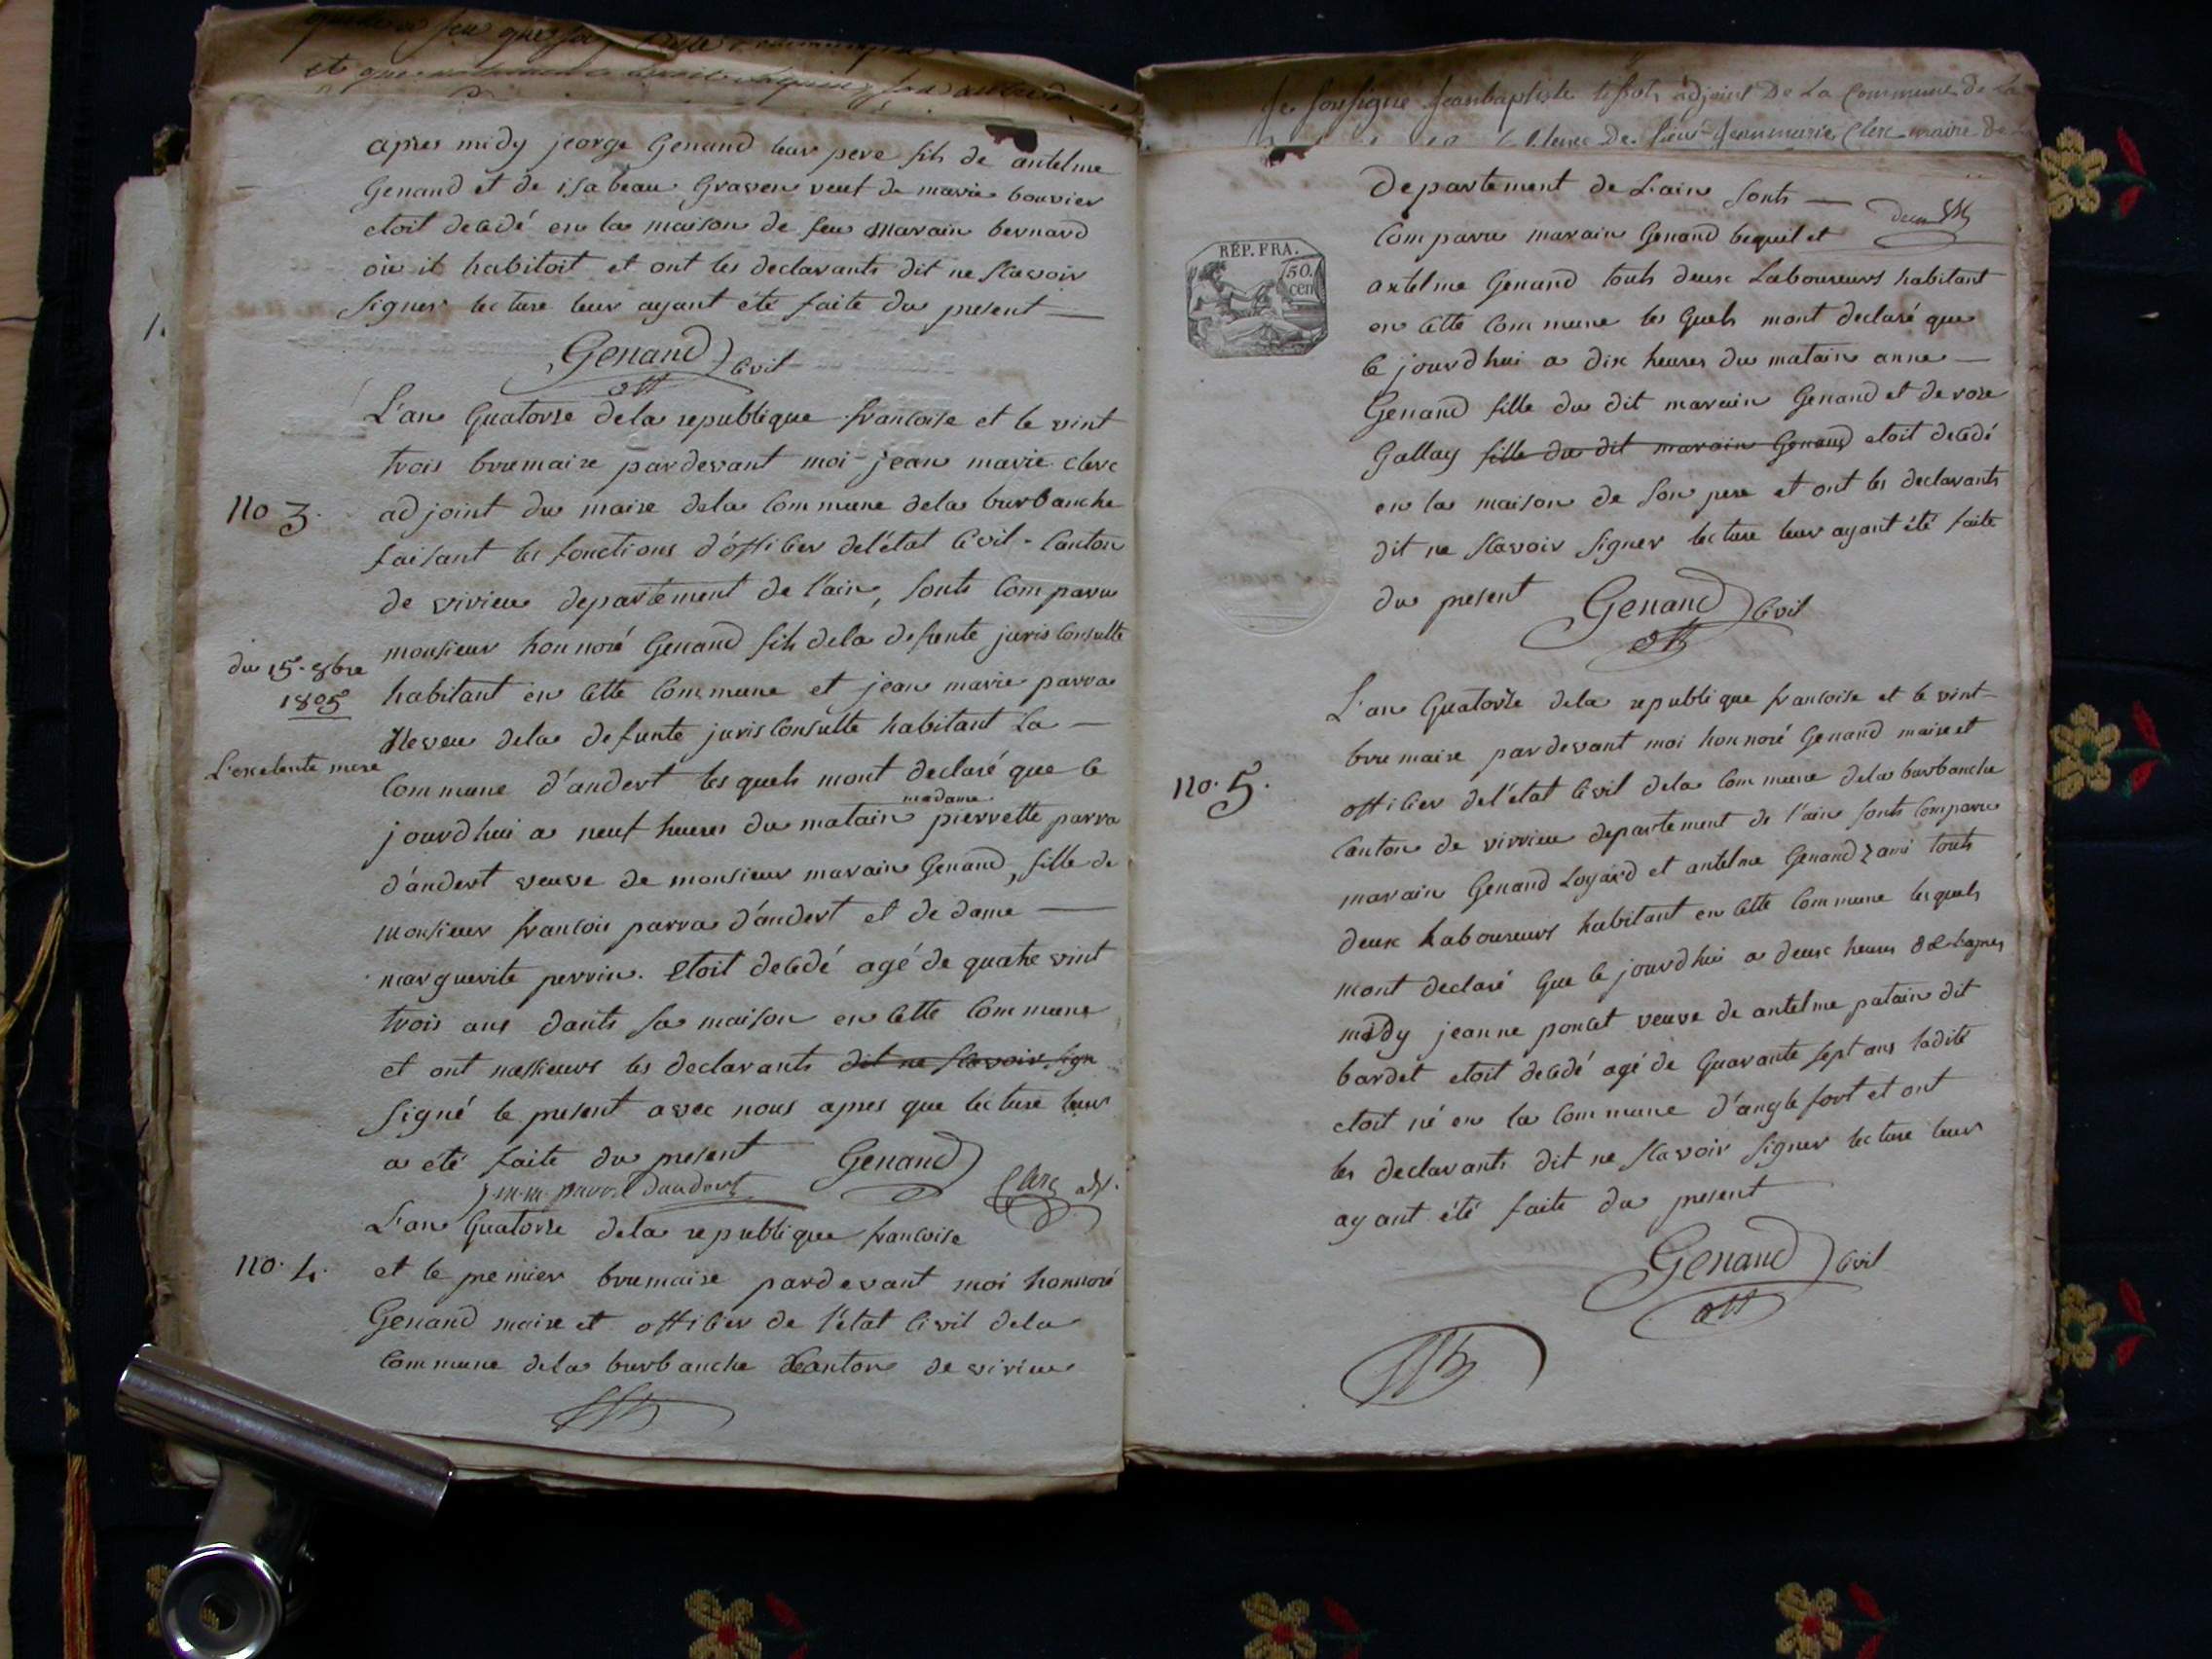 apres midy jeorge Genand leur pere fils de antelme
Genand et de isabeau Graven veuf de marie bouvier
etoit decedé en la maison de feu marain bernard
où il habitoit et ont les declarants dit ne scavoir
signer lecture leur ayant été faite du present —
Genand civil
L'an Quatorse de la republique francoise et le vint
trois brumaire pardevant moi jean marie clerc
no 3.
adjoint du maire dela commune dela burbanche
faisant les fonctions d'officier del'état civil - canton
de virieu departement de l'ain, sonts comparu
monsieur honnoré Genand fils dela defunte jurisconsulte
du 15. 8bre
1805
habitant en cette commune et jean marie parra
Neveu dela defunte jurisconsulte habitant la —
L'exelente mere
commune d'andert les quels mont declaré que ce
jourd'hui a neuf heures du matain madame pierrette parra
d'andert veuve de monsieur marain Genand, fille de
monsieur francois parra d'andert et de dame —
marguerite perrin. etoit decedé agé de quatre vint
trois ans dants sa maison en cette commune
et ont messieurs les declarants dit ne scavoir sign
signé le present avec nous apres que lecture leur
a été faite du present Genand
j.m.m. parra Dandert Clerc adj.
L'an Quatorse dela republique francoise
no. 4.
et le premier brumaire pardevant moi honnoré
Genand maire et officier de l'état civil dela
commune dela burbanche canton de virieu
Je Soussigné Jeanbaptiste tissot adjoint De La Commune de La
Clerc De Sieur Jeanmarie Clerc maire de
Departement de L'ain sonts —
comparu marain Genand bequil et
REP. FRA.
50.
cen
antelme Genand touts deux Laboureurs habitant
en cette commune les quels mont declaré que
ce jourd'hui a dix heures du matain anne —
Genand fille du dit marain Genand et de rose
Gallay fille du dit marain Genand etoit decedé
en la maison de son pere et ont les declarants
dit ne scavoir signer lecture leur ayant été faite
du present Genand civil
L'an Quatorse dela republique francoise et le vint
brumaire pardevant moi honnoré Genand maire et
no. 5.
officier del'état civil dela commune dela burbanche
canton de virrieu departement de l'ain sonts comparu
marain Genand Loyard et antelme Genand zami touts
deux Laboureurs habitant en cette commune les quels
mont declaré que ce jourd'hui a deux heures d'apres
midy jeanne poncet veuve de antelme patain dit
bardet etoit decedé agé de Quarante sept ans ladite
etoit né en la commune d'anglefort et ont
les declarants dit ne scavoir signer lecture leur
ayant été faite du present
Genand civil